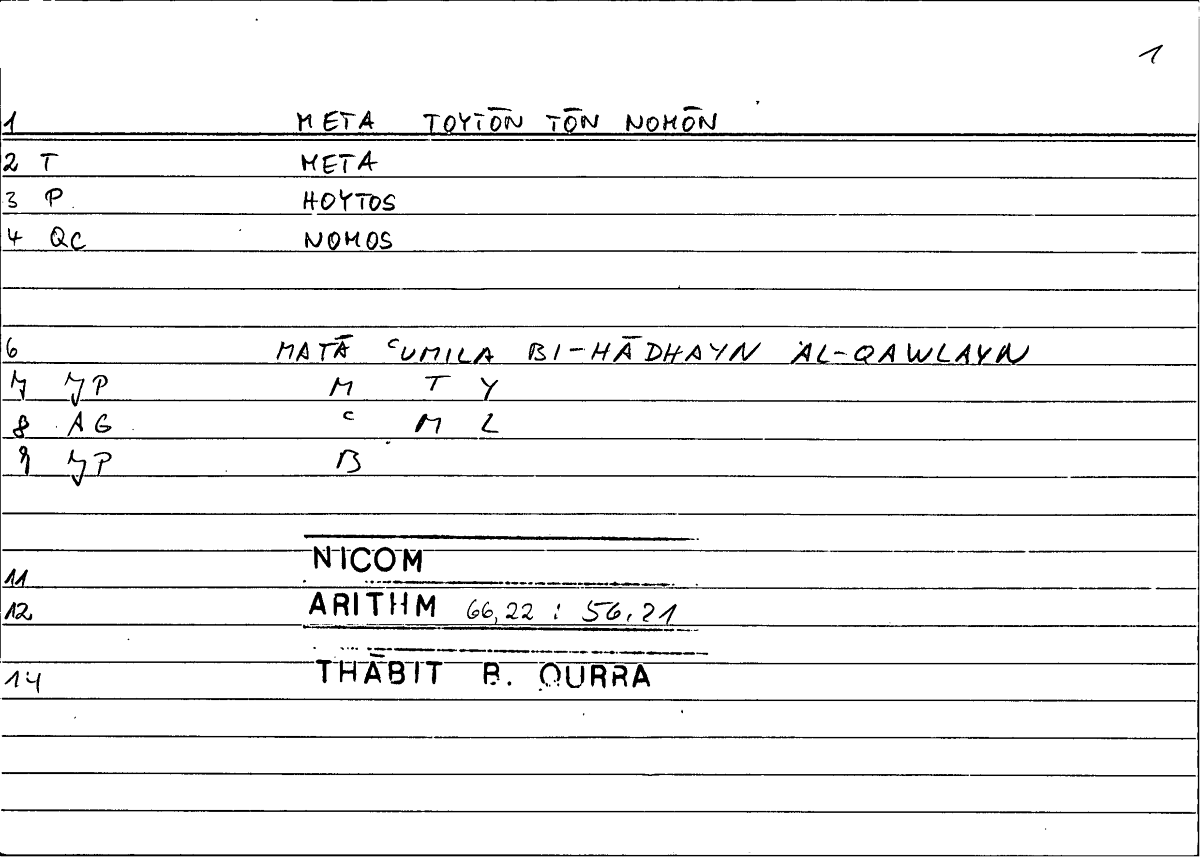 1
1 META TOYTŌN TŌN NOMŌN
2 T META
3 P HOYTOS
4 QC NOMOS
6 MATĀ ʿUMILA BI-HĀDHAYN AL-QAWLAYN
7 JP M T Y
8 AG ʿ M L
9 JP B
11 NICOM
12 ARITHM 66,22 : 56,21
14 THĀBIT B. QURRA